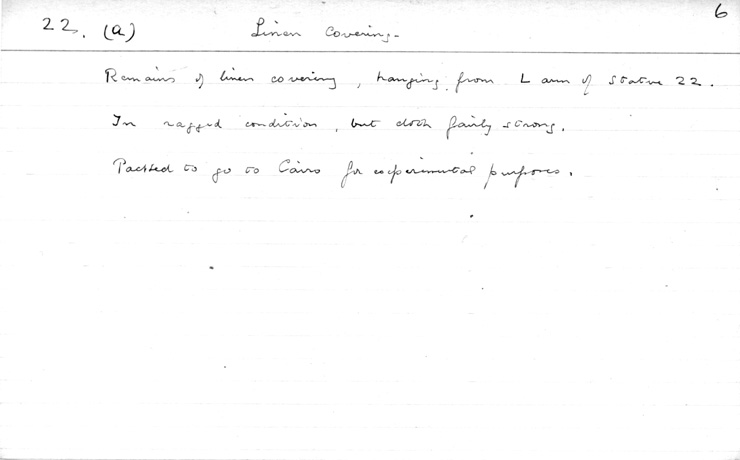 6
22. (a) Linen covering -
Remains of linen covering, hanging from L arm of statue 22.
In ragged condition, but cloth fairly strong.
Packed to go to Cairo for experimental purposes.